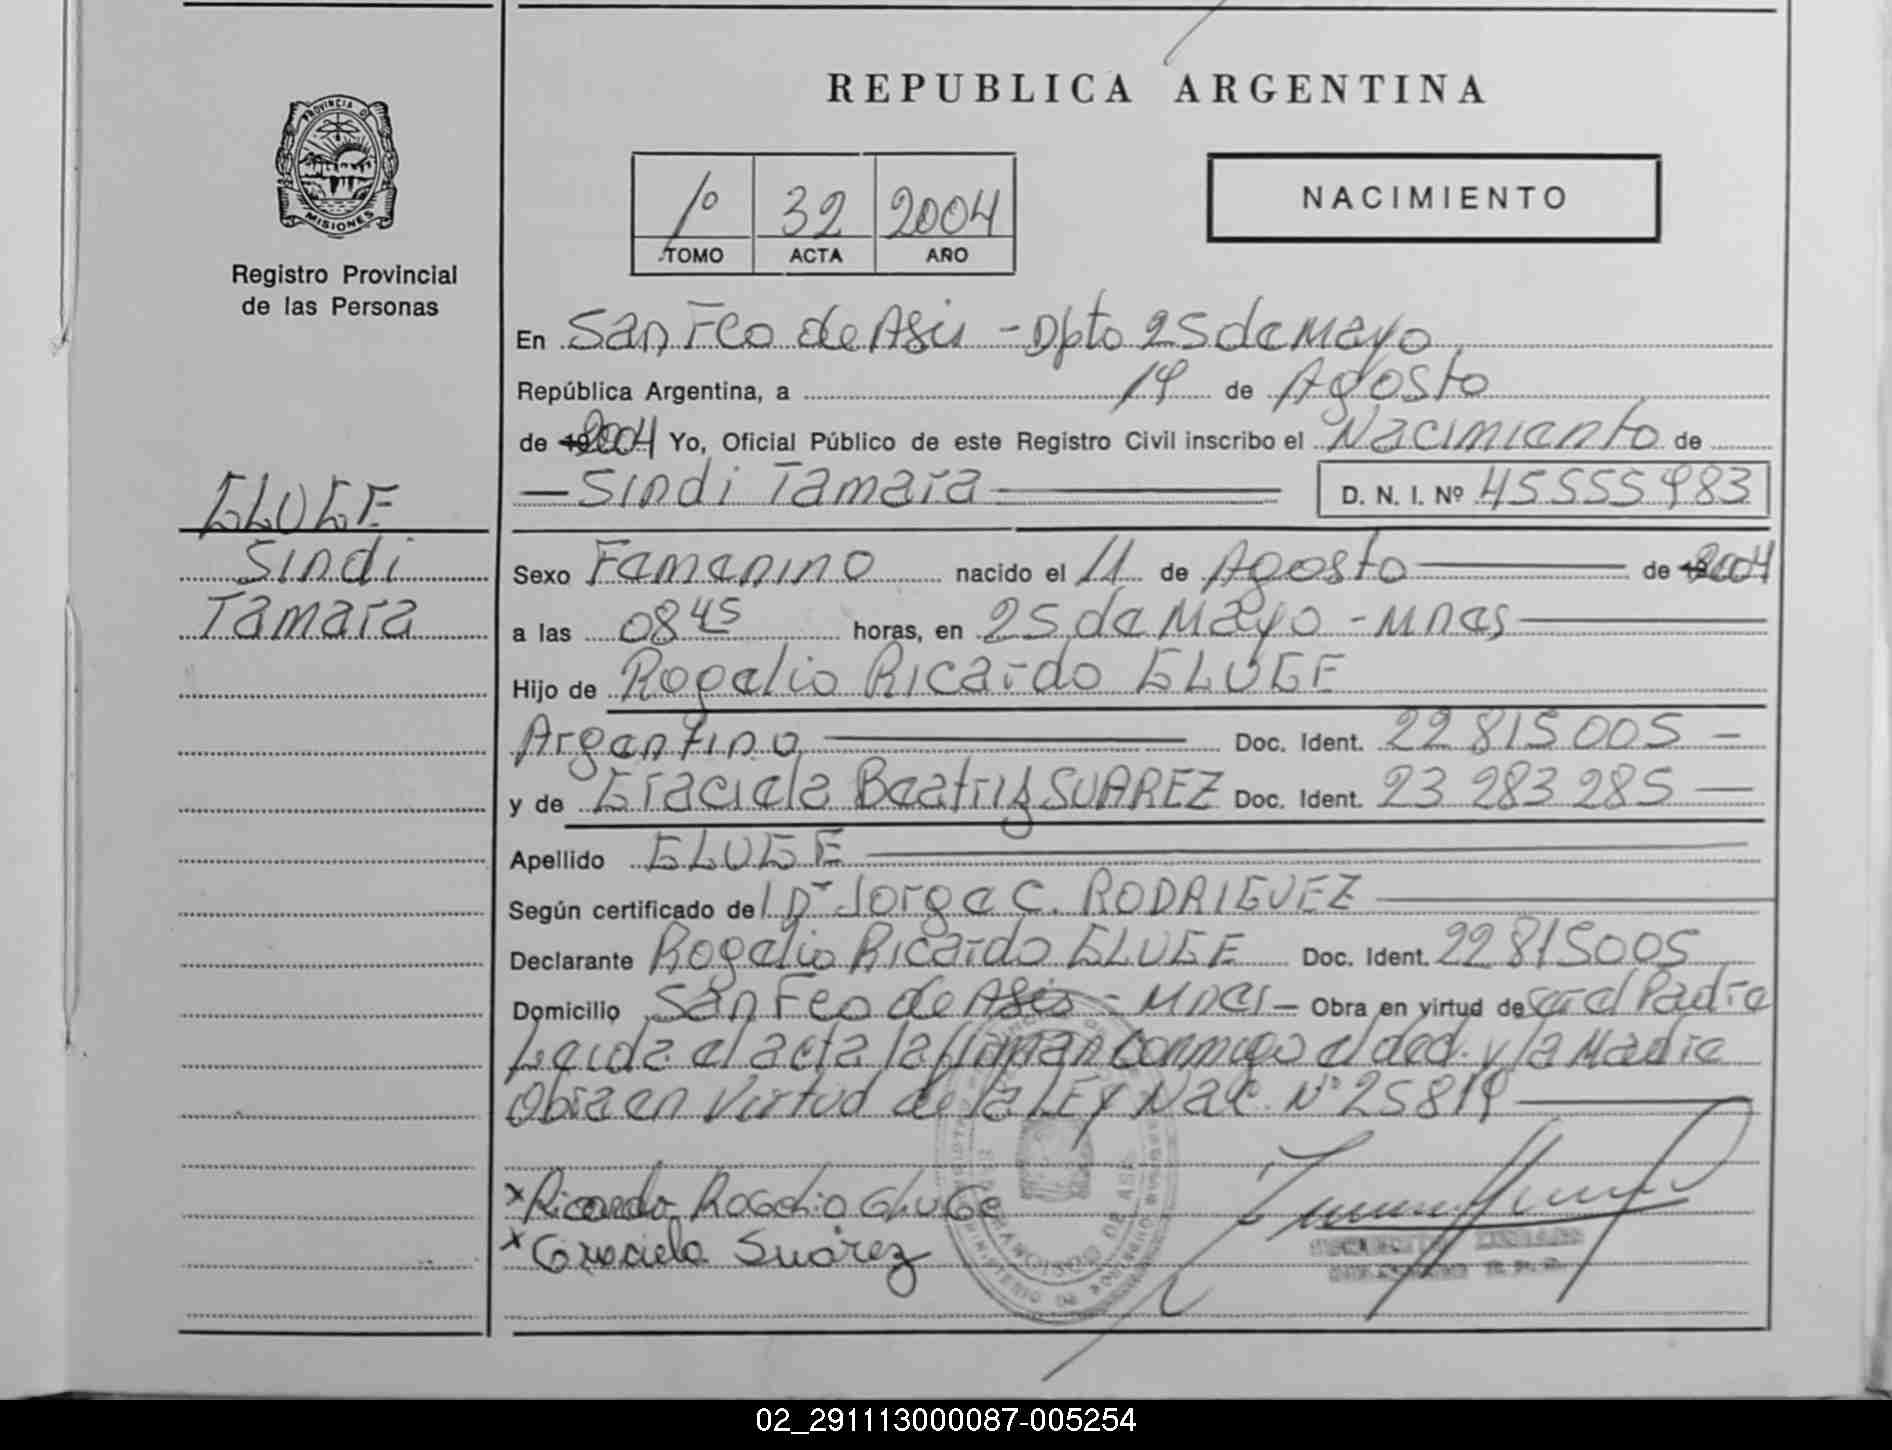 REPUBLICA ARGENTINA
PROVINCIA DE MISIONES
Registro Provincial
de las Personas
1º 32 2004
TOMO ACTA AÑO
NACIMIENTO
En San Fco de Asis - Dpto 25 de Mayo
República Argentina, a 19 de Agosto
de 2004 Yo, Oficial Público de este Registro Civil inscribo el Nacimiento de
Sindi Tamara D. N. I. Nº 45555983
GLUGE
Sindi
Tamara
Sexo Femenino nacido el 11 de Agosto de 2004
a las 08 45 horas, en 25 de Mayo - Mnes
Hijo de Rogelio Ricardo GLUGE
Argentino Doc. Ident. 22 815 005 -
y de Graciela Beatriz SUAREZ Doc. Ident. 23 283 285
Apellido GLUGE
Según certificado del Dr Jorge C. RODRIGUEZ
Declarante Rogelio Ricardo GLUGE Doc. Ident. 22815005
Domicilio San Fco de Asis - Mnes - Obra en virtud de ser el Padre
Leida el acta la firman conmigo el dec. y la Madre
Obra en Virtud de la LEY Nac. Nº 25819
x Ricardo Rogelio Gluge
x Graciela Suárez
02_291113000087-005254